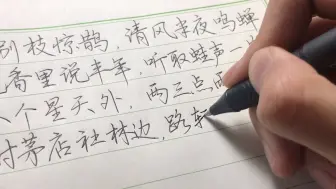 别枝惊鹊，清风半夜鸣蝉
香里说丰年，听取蛙声一
个星天外，两三点雨
时茅店社林边，路转